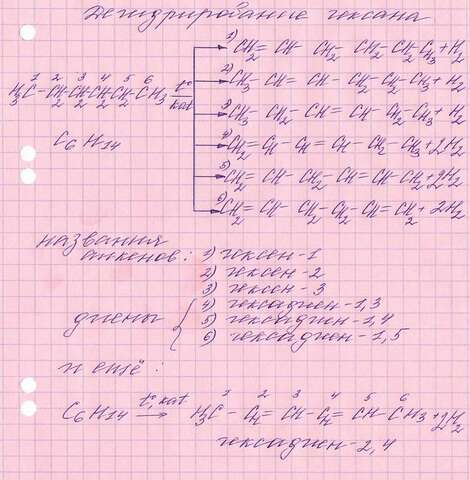 Дегидрирование гексана
1) CH₂ = CH - CH₂ - CH₂ - CH₂ CH₃ + H₂
2) CH₃ CH = CH - CH₂ CH₂ CH₃ + H₂
H₃C - CH₂ - CH₂ CH₂ CH₂ - CH₃ t° kat
1 2 3 4 5 6
3) CH₃ - CH₂ - CH = CH - CH₂ - CH₃ + H₂
C₆H₁₄
4) CH₂ = CH - CH = CH - CH₂ - CH₃ + 2H₂
5) CH₂ = CH - CH₂ - CH = CH - CH₃ + 2H₂
6) CH₂ = CH - CH₂ - CH₂ - CH = CH₂ + 2H₂
названия
алкенов: 1) гексен-1
2) гексен-2
3) гексен-3
диены { 4) гексадиен-1,3
5) гексадиен-1,4
6) гексадиен-1,5
и ещё:
1 2 3 4 5 6
C₆H₁₄ t°, kat → H₃C - CH = CH - CH = CH - CH₃ + 2H₂
гексадиен-2,4